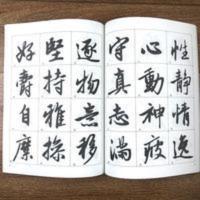 性靜情逸
心動神疲
守真志滿
逐物意移
堅持雅操
好爵自縻